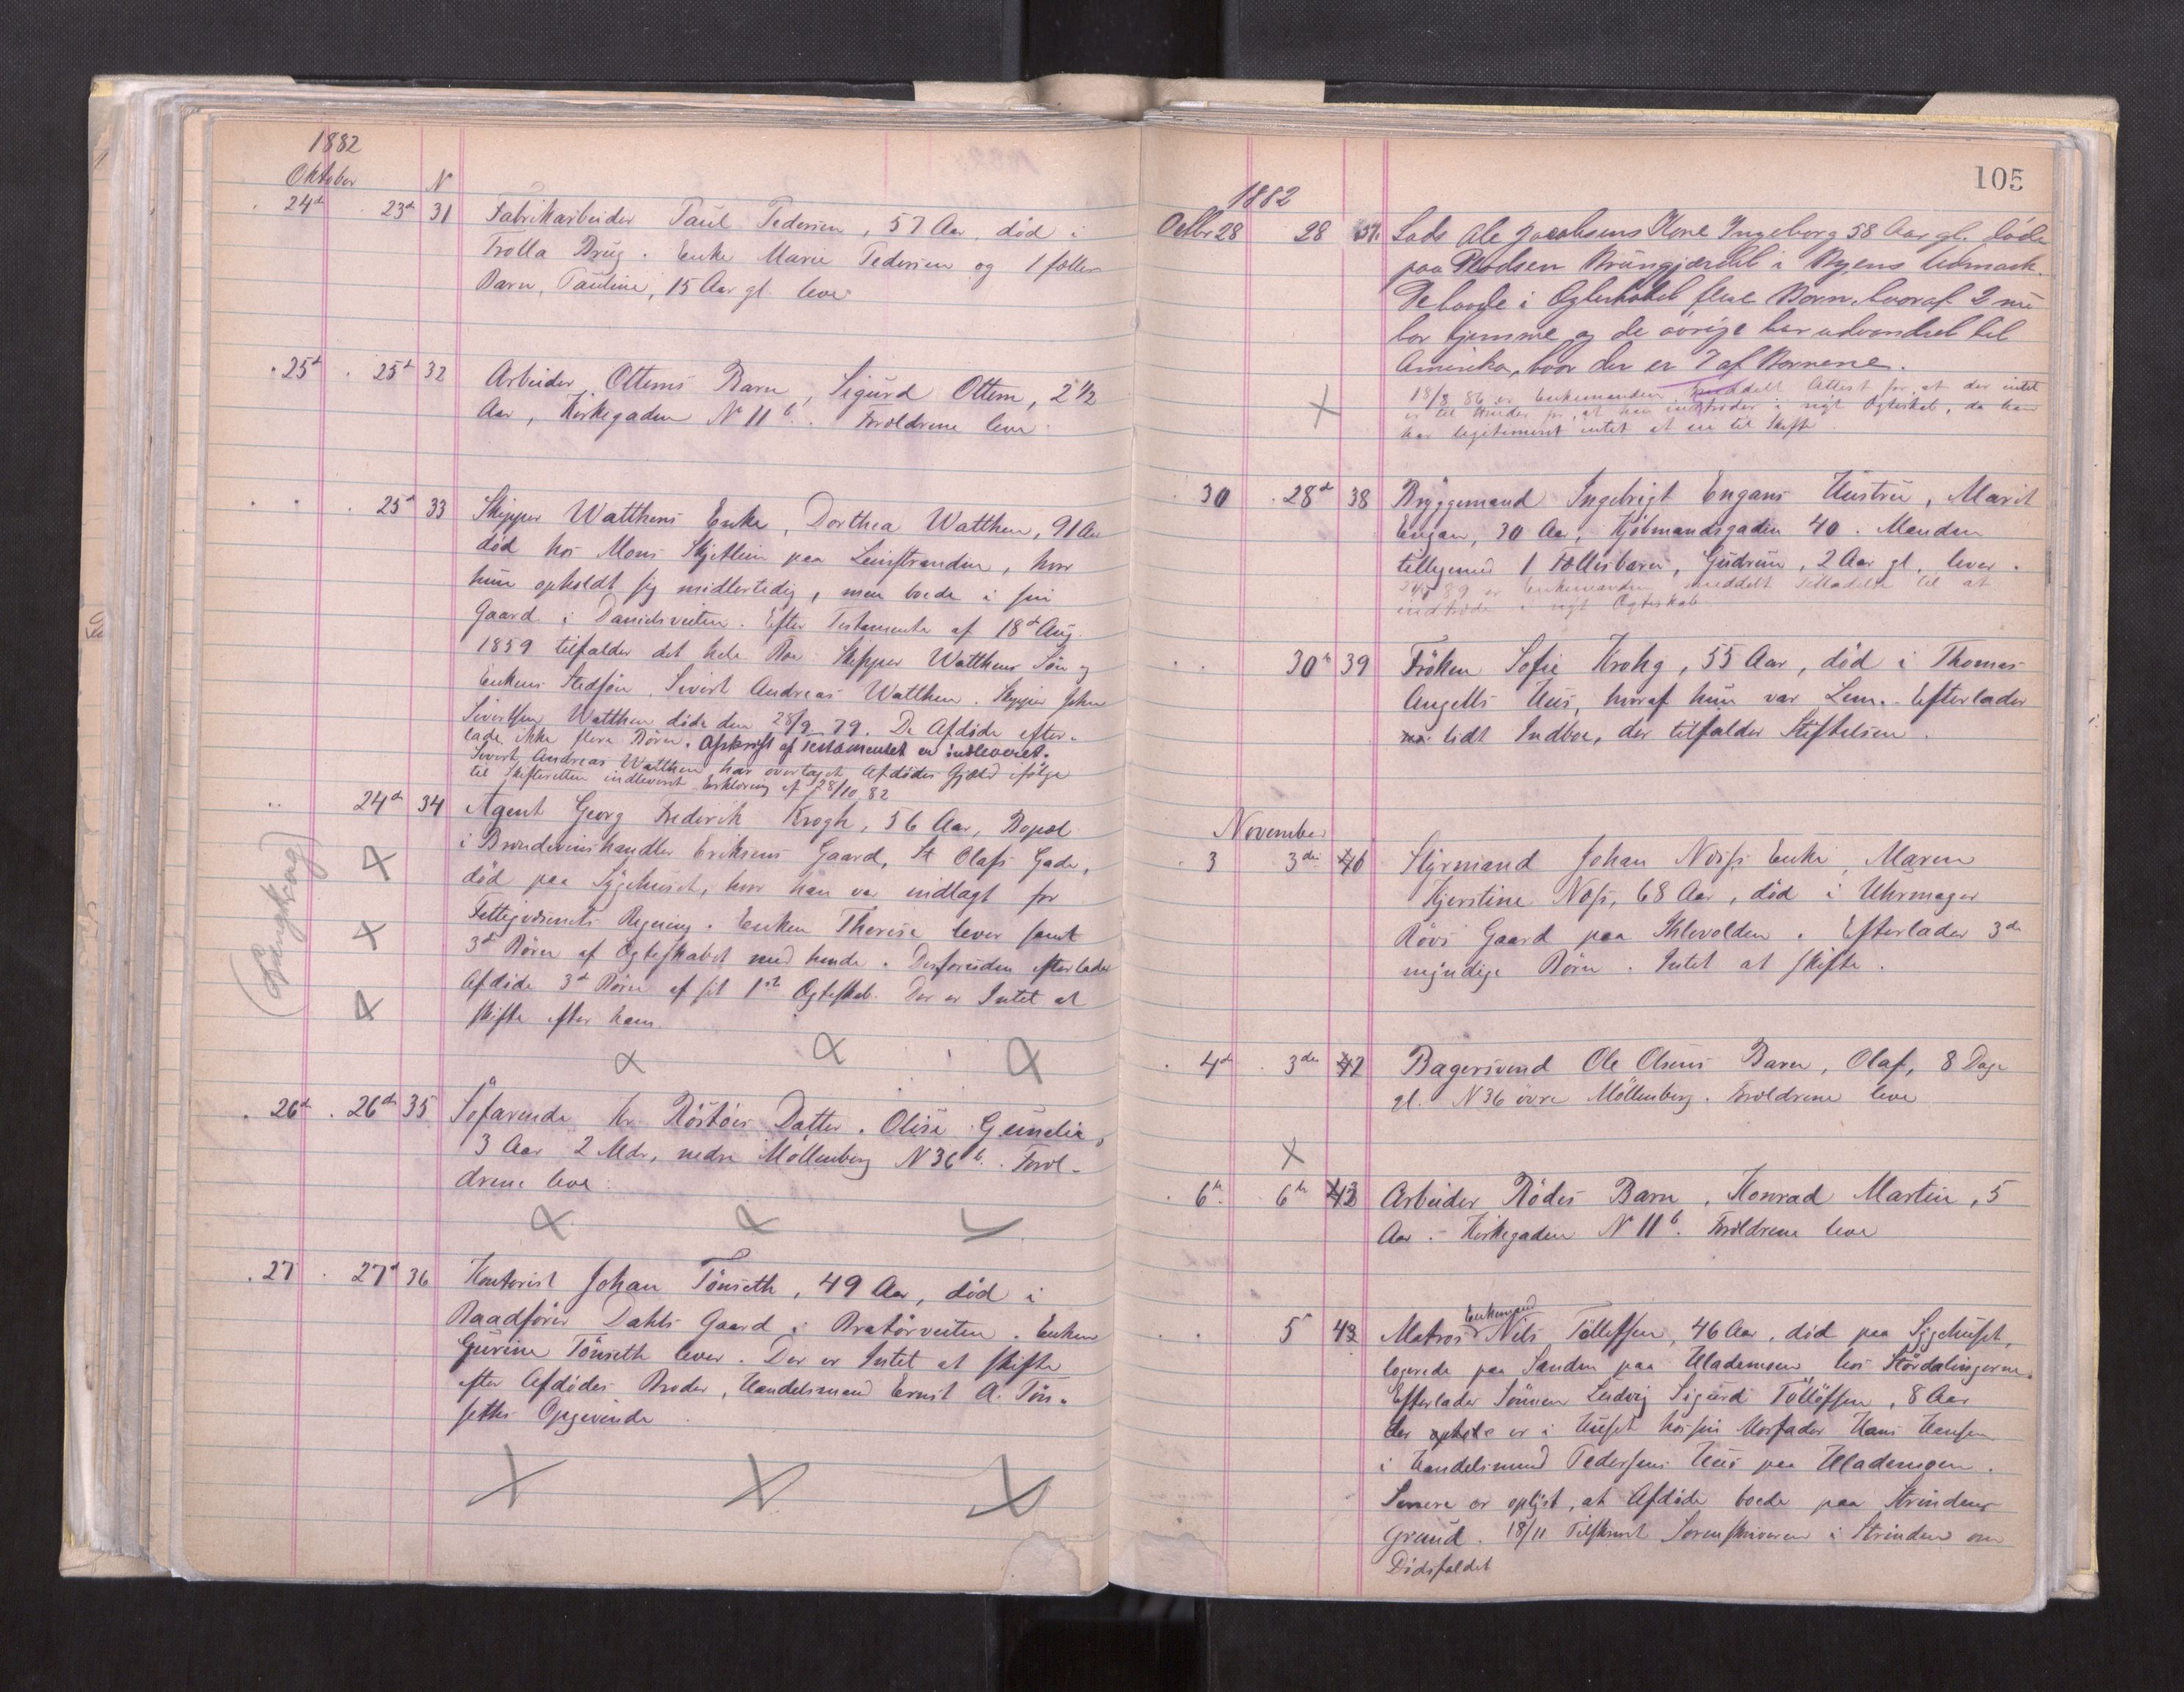 1882
Oktober N
24d 23d 31 Fabrikarbeider Paul Pedersen, 57 Aar, død i
Trolla Brug. Enke Marie Pedersen og 1 fælles
Barn, Pauline, 15 Aar gl. leve
25d 25d 32 Arbeider Ottems Barn, Sigurd Ottem, 2 1/2
Aar, Kirkegaden No 11b. Forældrene leve
25d 33 Skipper Watthens Enke, Dorthea Watthen, 91 Aar
død hos Mons Skjetlein paa Leinstranden, hvor
hun opholdt sig midlertidig, men boede i sin
Gaard i Danielsveiten. Efter Testamente af 18d Aug.
1859 tilfalder det hele Boe Skipper Watthens Søn og
Enkens Stedsøn Sivert Andreas Watthen. Skipper John
Sivertsen Watthen døde den 28/9 79. De Afdøde efter-
lade ikke flere Børn. Afskrift af Testamentet er indleveret.
Sivert Andreas Watthen har overtaget Afdødes Gjæld ifølge
til Skifteretten indleveret Erklæring af 28/10 82
24d 34 Agent Georg Frederik Krogh, 36 Aar, Bopæl
i Brændevinshandler Eriksens Gaard, St Olafs Gade,
død paa Sygehuset, hvor han var indlagt for
Fattigvæsenets Regning. Enken Therese lever samt
3d Børn af Ægteskabet med hende. Desforuden efterlader
Afdøde 3d Børn af sit 1ste Ægteskab. Der er Intet at
skifte efter ham
26d 26d 35 Søfarende Kr. Røstøes Datter, Olise Gunelie,
3 Aar 2 Mdr, nedre Møllenberg N 36b. Foræl-
drene leve
27 27d 36 Kontorist Johan Tönseth, 49 Aar, død i
Raadfører Dahls Gaard i Bratørveiten. Enken
Gurine Tönseth lever. Der er Intet at skifte
efter Afdødes Broder, Handelsmand Ernst A. Tön-
seths Opgivende
105
1882
Octbr 28 28 37. Lods Ole Jacobsens Kone Ingeborg 58 Aar gl. døde
paa Brungjærdet i Byens Udmark.
De havde i Ægteskabet flere Børn, hvoraf 2 nu
bor hjemme og de øvrige har udvandret til
Amerika, hvor der er 7 af Børnene.
18/8 86 er Enkemanden meddelt Attest for, at der intet
er til Hinder for, at han indtræder i nyt Ægteskab, da han
har legitimeret intet at eie til Skifte
30 28d 38 Bryggemand Ingebrigt Engans Hustru, Marit
Engan, 30 Aar, Kjøbmandsgaden 40. Manden
tilligemed 1 Fællesbarn, Gudrun, 2 Aar gl. lever.
89 er Enkemanden meddelt Tilladelse til at
indtræde i nyt Ægteskab
30te 39 Frøken Sofie Krohg, 55 Aar, død i Thomas
Angells Hus, hvoraf hun var Lem. Efterlader
lidt Indboe, der tilfalder Stiftelsen.
November
3 3die 40 Styrmand Johan Næss's Enke, Maren
Kjerstine Næss, 68 Aar, død i Uhrmager
Røvs Gaard paa Ihlevolden. Efterlader 3de
myndige Børn. Intet at skifte.
4d 3die 42 Bagersvend Ole Olsens Barn, Olaf, 8 Dage
gl. N 36 övre Möllenberg. Forældrene leve
6te 6te 42 Arbeider Rödes Barn, Konrad Martin, 5
Aar. Kirkegaden No 11b. Forældrene leve
5 43 Matros Enkemand Nils Tollefsen, 46 Aar, død paa Sygehuset,
logerede paa Sanden paa Ilademoen hos Stördalingerne.
Efterlader Sønnen Ludvig Sigurd Tollöfsen, 8 Aar
der er i Huset hos sin Morfader Hans Hansen
i Handelsmand Pedersens Hus paa Ilademoen.
Senere er oplyst, at Afdøde boede paa Strindens
Grund. 18/11 Tilskrevet Sorenskriveren i Strinden om
Dødsfaldet